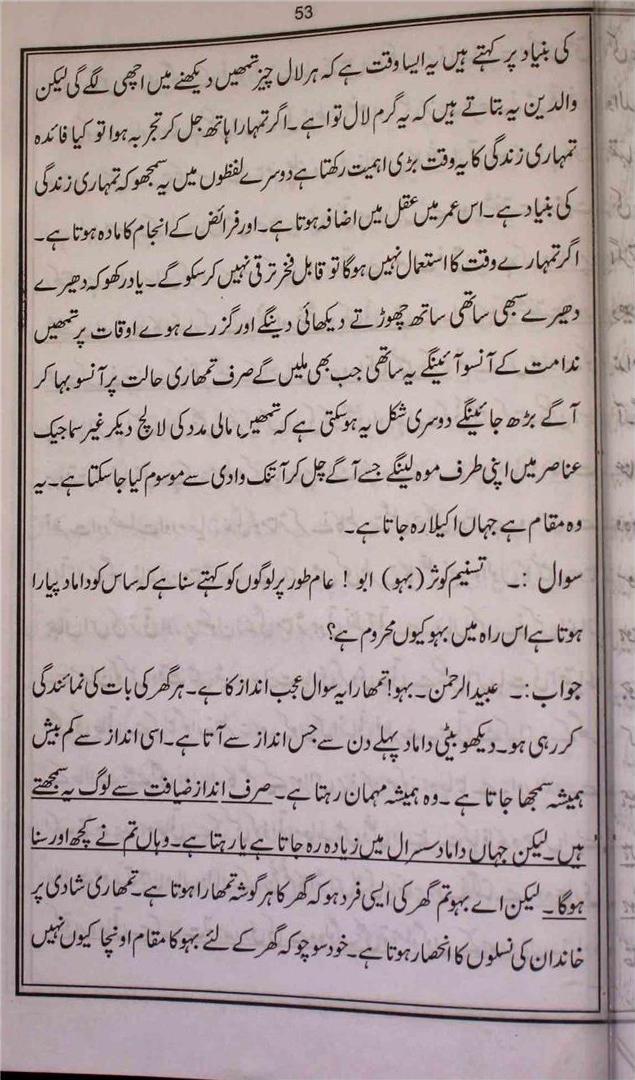 53
کی بنیاد پر کہتے ہیں یہ ایسا وقت ہے کہ ہر لال چیز تمھیں دیکھنے میں اچھی لگے گی لیکن
والدین یہ بتاتے ہیں کہ یہ گرم لال توا ہے۔ اگر تمہارا ہاتھ جل کر تجربہ ہوا تو کیا فائدہ
تمہاری زندگی کا یہ وقت بڑی اہمیت رکھتا ہے دوسرے لفظوں میں یہ سمجھو کہ تمہاری زندگی
کی بنیاد ہے۔ اس عمر میں عقل میں اضافہ ہوتا ہے۔ اور فرائض کے انجام کا مادہ ہوتا ہے۔
اگر تمہارے وقت کا استعمال نہیں ہوگا تو قابل فخر ترقی نہیں کر سکو گے۔ یاد رکھو کہ دھیرے
دھیرے سبھی ساتھی ساتھ چھوڑتے دیکھائی دینگے اور گزرے ہوے اوقات پر تمھیں
ندامت کے آنسو آئینگے یہ ساتھی جب بھی ملیں گے صرف تمھاری حالت پر آنسو بہا کر
آگے بڑھ جائینگے دوسری شکل یہ ہو سکتی ہے کہ تمھیں مالی مدد کی لالچ دیکر غیر سماجیک
عناصر میں اپنی طرف موہ لینگے جسے آگے چل کر آتنک وادی سے موسوم کیا جا سکتا ہے۔ یہ
وہ مقام ہے جہاں اکیلا رہ جاتا ہے۔
سوال :۔ تسنیم کوثر (بہو) ابو ! عام طور پر لوگوں کو کہتے سنا ہے کہ ساس کو داماد پیارا
ہوتا ہے اس راہ میں بہو کیوں محروم ہے؟
جواب :۔ عبید الرحمٰن۔ بہو! تمھارا یہ سوال عجب انداز کا ہے۔ ہر گھر کی بات کی نمائندگی
کر رہی ہو۔ دیکھو بیٹی داماد پہلے دن سے جس انداز سے آتا ہے۔ اسی انداز سے کم بیش
ہمیشہ سمجھا جاتا ہے۔ وہ ہمیشہ مہمان رہتا ہے۔ صرف انداز ضیافت سے لوگ یہ سمجھتے
ہیں۔ لیکن جہاں داماد سسرال میں زیادہ رہ جاتا ہے یا رہتا ہے۔ وہاں تم نے کچھ اور سنا
ہوگا۔ لیکن اے بہو تم گھر کی ایسی فرد ہو کہ گھر کا ہر گوشہ تمھارا ہوتا ہے۔ تمھاری شادی پر
خاندان کی نسلوں کا انحصار ہوتا ہے۔ خود سوچو کہ گھر کے لئے بہو کا مقام اونچا کیوں نہیں